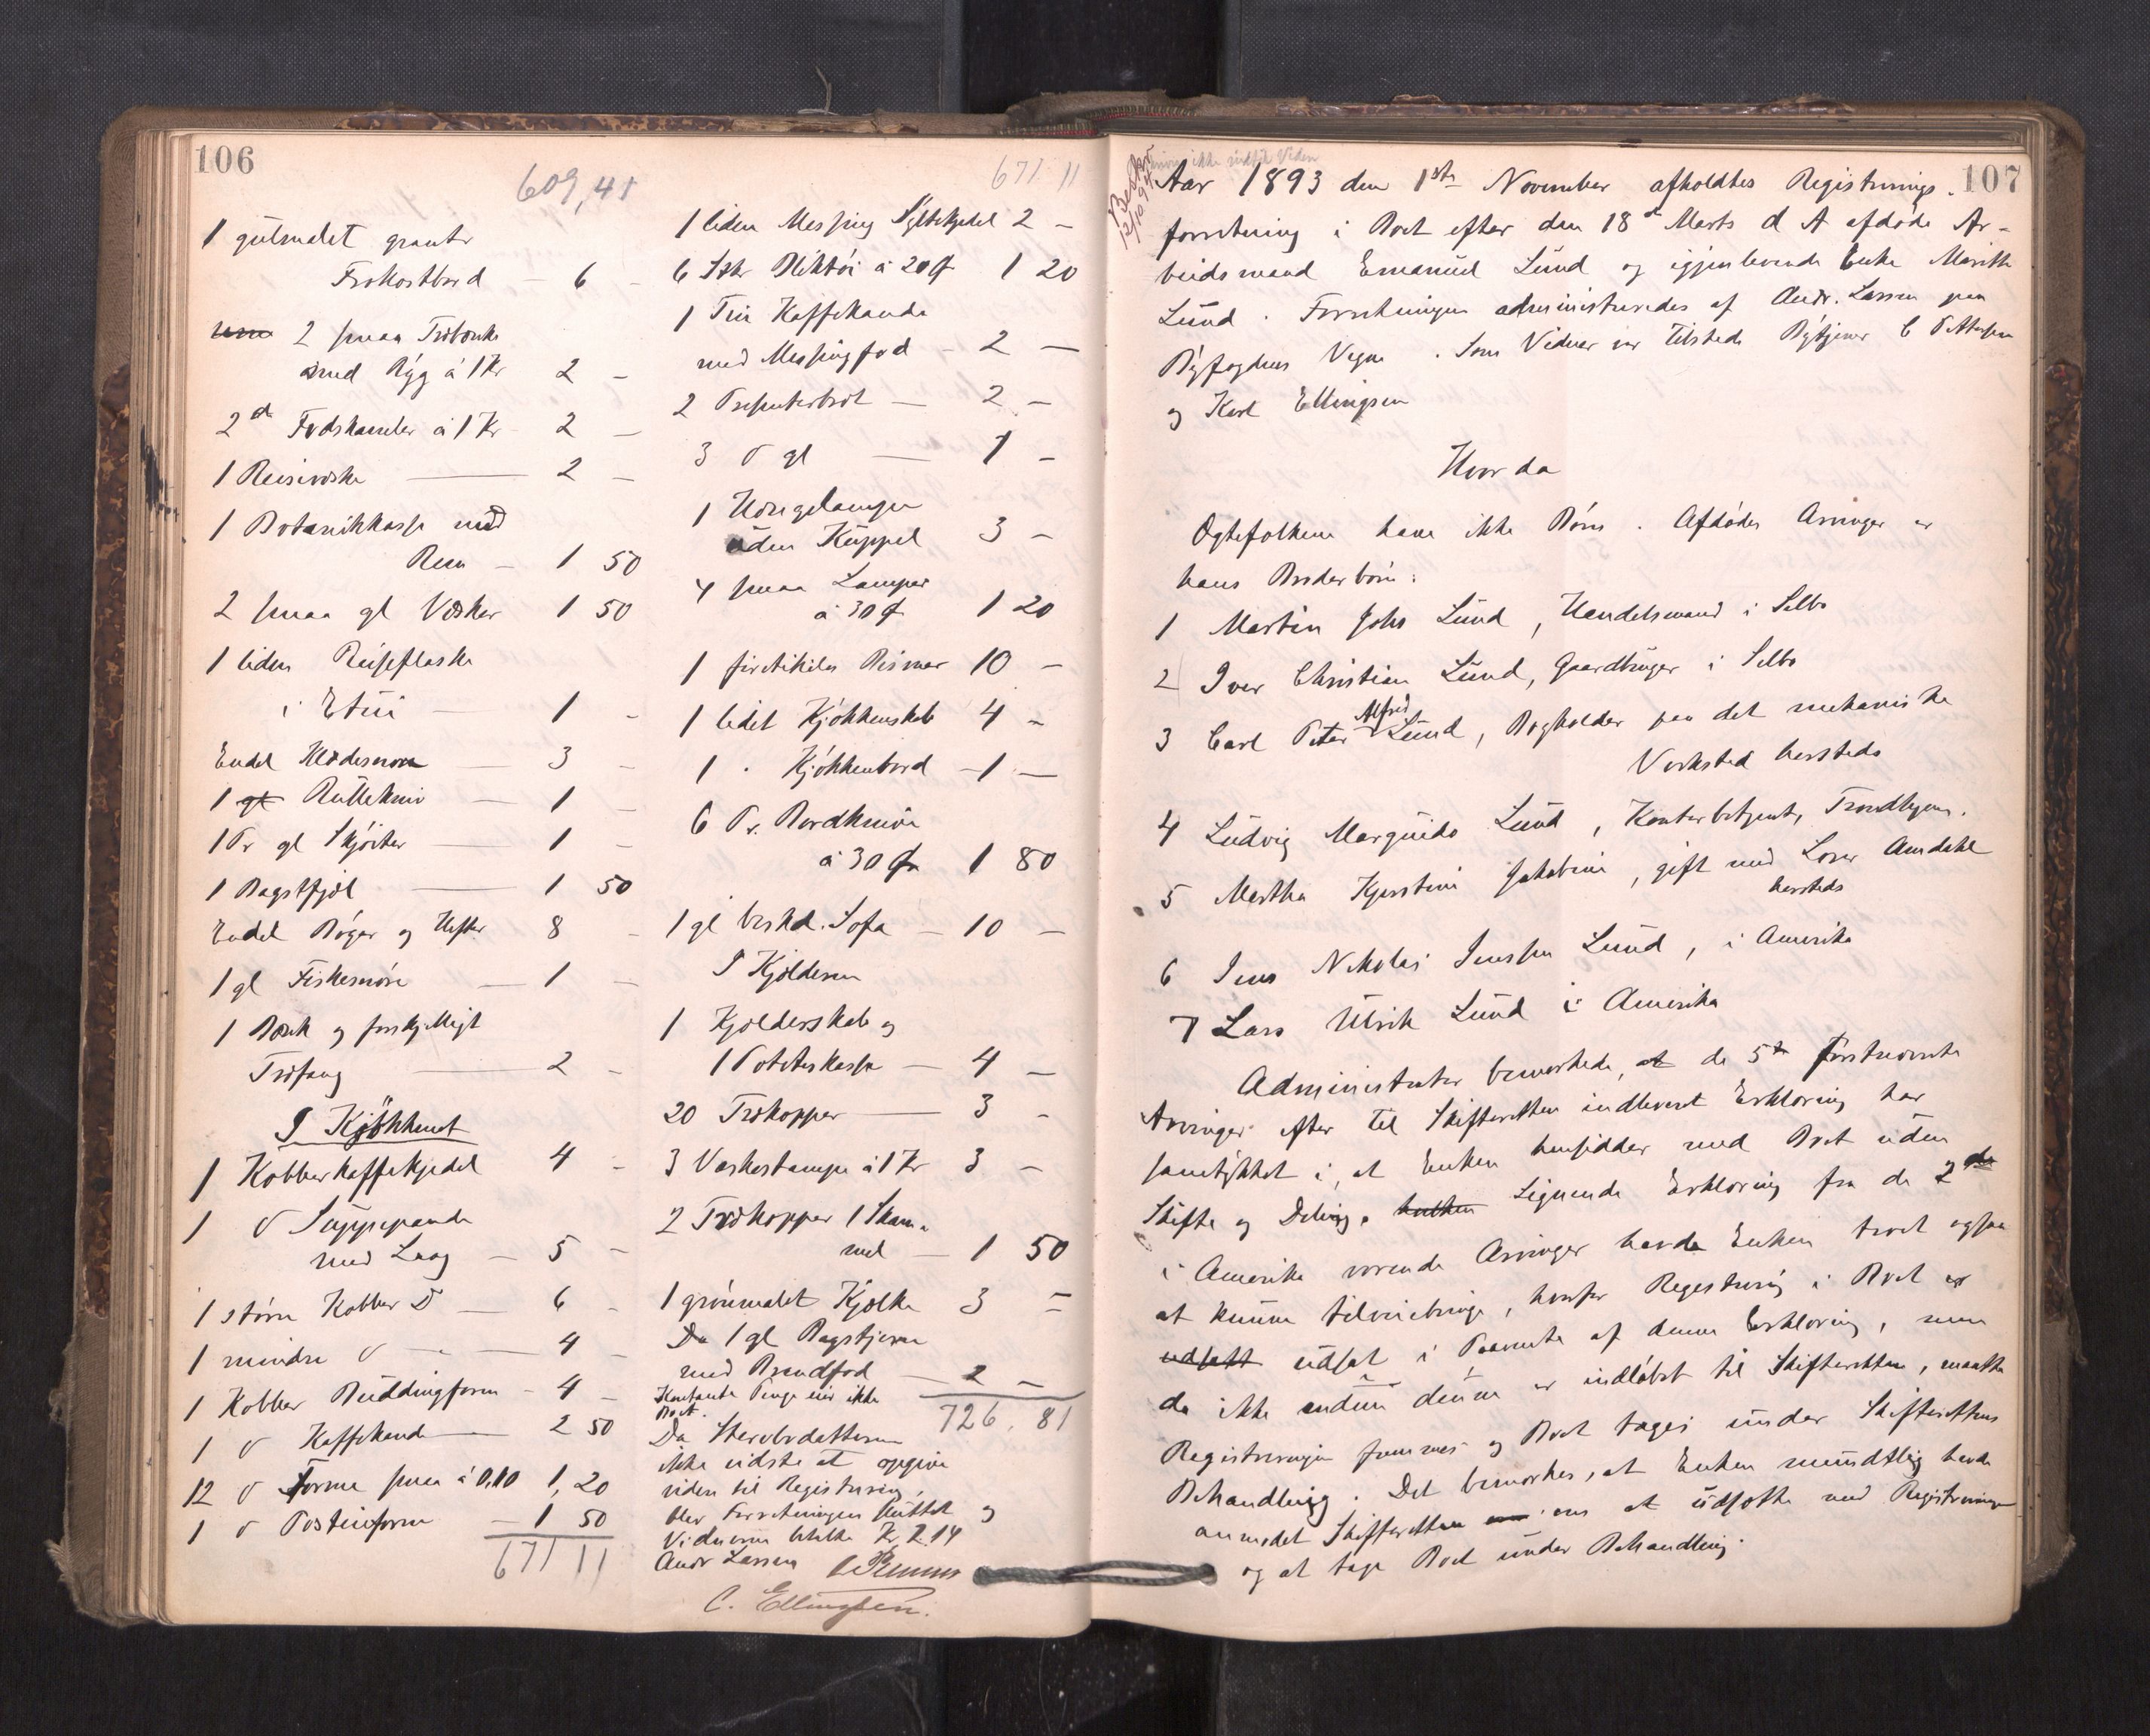 106
609,41
1 gulmalet grantr
Frokostbord — 6 -
2 smaa Træbænke
med Ryg à 1 Kr 2 -
2 d Fodskamler à 1 Kr 2 -
1 Reisevæske — 2 -
1 Botanikkasse med
Rem — 1 50
2 smaa gl Væsker 1 50
1 liden Reiseflaske
i Etui — 1 -
Endel Klædesnore — 3 -
1 gl Rullekniv — 1 -
1 Pr gl Skjøiter — 1 -
1 Bagstfjøl — 1 50
Endel Bøger og Hefter 8 -
1 gl Fiskesnøre — 1 -
1 Bænk og forskjelligt
Træfang — 2 -
I Kjøkkenet
1 Kobberkaffekjedel 4 -
1 d Suppepande
med Laag — 5 -
1 større Kobber D — 6 -
1 mindre d — 4 -
1 Kobber Buddingform - 4 -
1 d Kaffekande 2 50
12 d Forme smaa à 0,10 1,20
1 d Posteiform — 1 50
671 11
671 11
1 liden Messing Syltekjedel 2 -
6 Stkr Bliktøi à 20 Ø 1 20
1 Tin Kaffekande
med Messingfod — 2 —
2 Presenterbræt — 2 -
3 d gl — 1 -
1 Hængelampe
uden Kuppel 3 -
4 smaa Lamper
à 30 Ø 1 20
1 Bismer 10 -
1 lidet Kjøkkenskab 4 -
1 " Kjøkkenbord - 1 —
6 Pr. Bordknive
à 30 Ø 1 80
1 gl beskd. Sofa — 10 —
I Kjælderen
1 Kjælderskab og
1 Poteteskasse — 4 —
20 TræKopper — 3 -
3 Vaskestampe à 1 Kr 3 -
2 Trækopper 1 Skam-
mel — 1 50
1 grønmalet Kjælke 3 =
Da 1 gl Bagstjerne
med Brændfod — 2 —
Kontante Penge eier ikke
Boet.
726.81
Da Stervbodatteren
ikke vidste at opgive
viden til Registrering,
blev Forretningen sluttet og
Vidnerne betalte Kr 2.14
Andr Larsen
C. Ellingsen.
107
12/10 94
Aar 1893 den 1ste November afholdtes Registrerings-
forretning i Boet efter den 18de Marts d A afdøde Ar-
beidsmand Emanuel Lund og igjenlevende Enke Marith
Lund. Forretningen administreredes af Andr. Larsen paa
Byfogdens Vegne. Som Vidner var tilstede Bytjener C Pettersen
og Karl Ellingsen
Hvorda
Ægtefolkene have ikke Børn. Afdødes Arvinger er
hans Broderbørn:
1 Martin Johs Lund, Handelsmand i Selbo
2 Iver Christian Lund, Gaardbruger i Selbo
3 Carl Peter Alfred Lund, Bogholder paa det mekaniske
Verksted hersteds
4 Ludvig Marquido Lund, Kontorbetjent, Trondhjem.
5 Martha Kjerstine Jakobine, gift med Amdahl
hersteds
6 Jens Nikolai Jenssen Lund, i Amerika
7 Lars Ulrik Lund i Amerika
Administrator bemærkede, at de 5te førstnævnte
Arvinger efter til Skifteretten indleveret Erklæring har
samtykket i, at Enken hensidder med Boet uden
Skifte og Deling. hvilken Lignende Erklæring fra de 2de
i Amerika værende Arvinger havde Enken troet ogsaa
at kunne tilveiebringe, hvorfor Registrering i Boet er
udsatt udsat i Paavente af denne Erklæring, men
da ikke endnu denne er indløbet til Skifteretten, maatte
Registreringen fremmes og Boet tages under Skifterettens
Behandling. Det bemærkes, at Enken mundtlig havde
anmodet Skifteretten om at udsætte med Registreringen
og at tage Boet under Behandling.